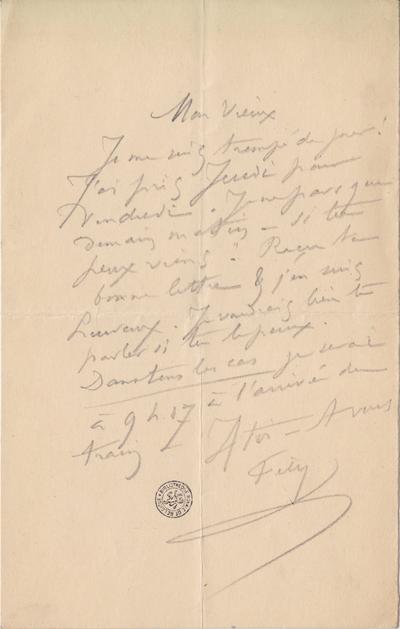 Mon Vieux
Je me suis trompé de jour!
J'ai pris Jeudi pour
Vendredi. Je ne pars que
Demain matin – si tu
peux viens! Reçu ta
bonne lettre & j'en suis
heureux. Je voudrais bien te
parler si tu le peux.
Dans tous les cas je serai
à 9 h. 17 à l'arrivée du
train
À toi – à vous
Fély
BIBLIOTHEQUE ROYALE DE BELGIQUE